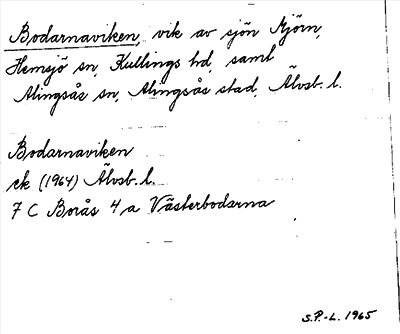 Bodarnaviken, vik av sjön Mjörn,
Hemsjö sn, Kullings hd, saml
Alingsås sn, Alingsås stad, Älvsb. l.
Bodarnaviken
ek (1964) Älvsb. l.
7 C Borås 4 a Västerbodarna
S.P.-L. 1965